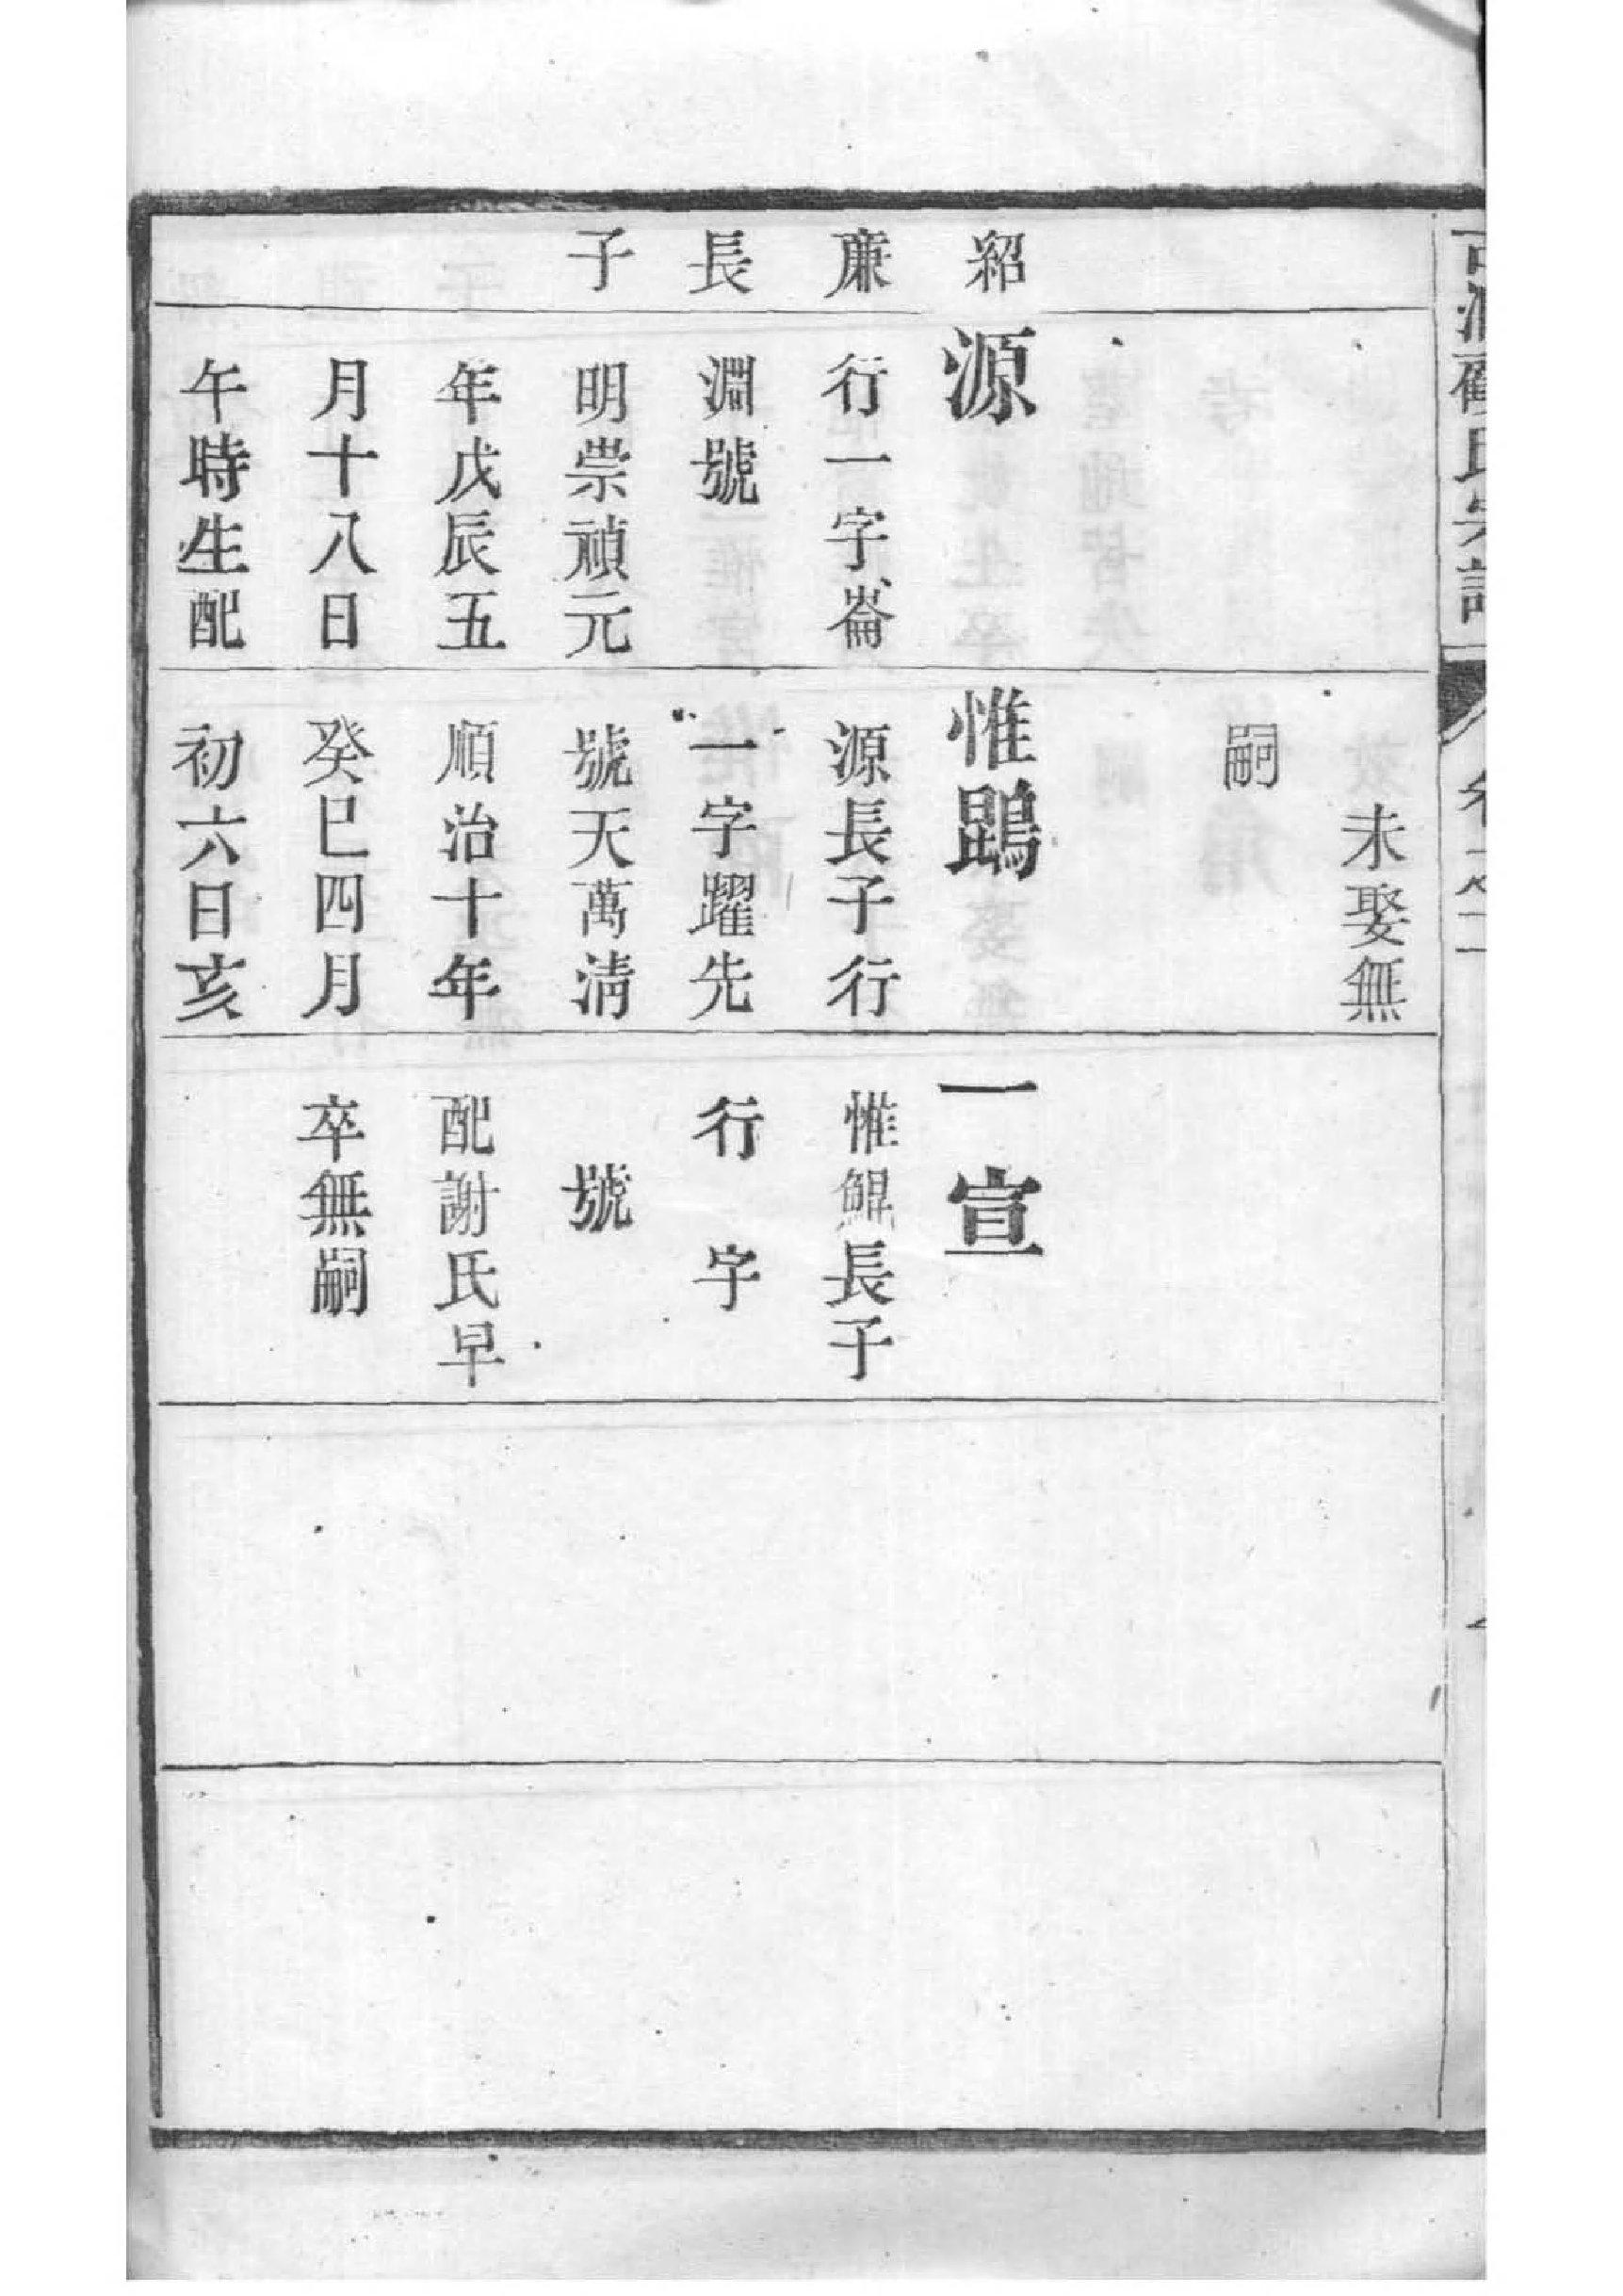 氏宗譜
卷之二
紹
廉
長
子
源
行一字崙
淵號
明崇禎元
年戊辰五
月十八日
午時生配
未娶無
嗣
惟鵾
源長子行
一字躍先
號天萬清
順治十年
癸巳四月
初六日亥
一宣
惟鯤長子
行　字
號
配謝氏早
卒無嗣